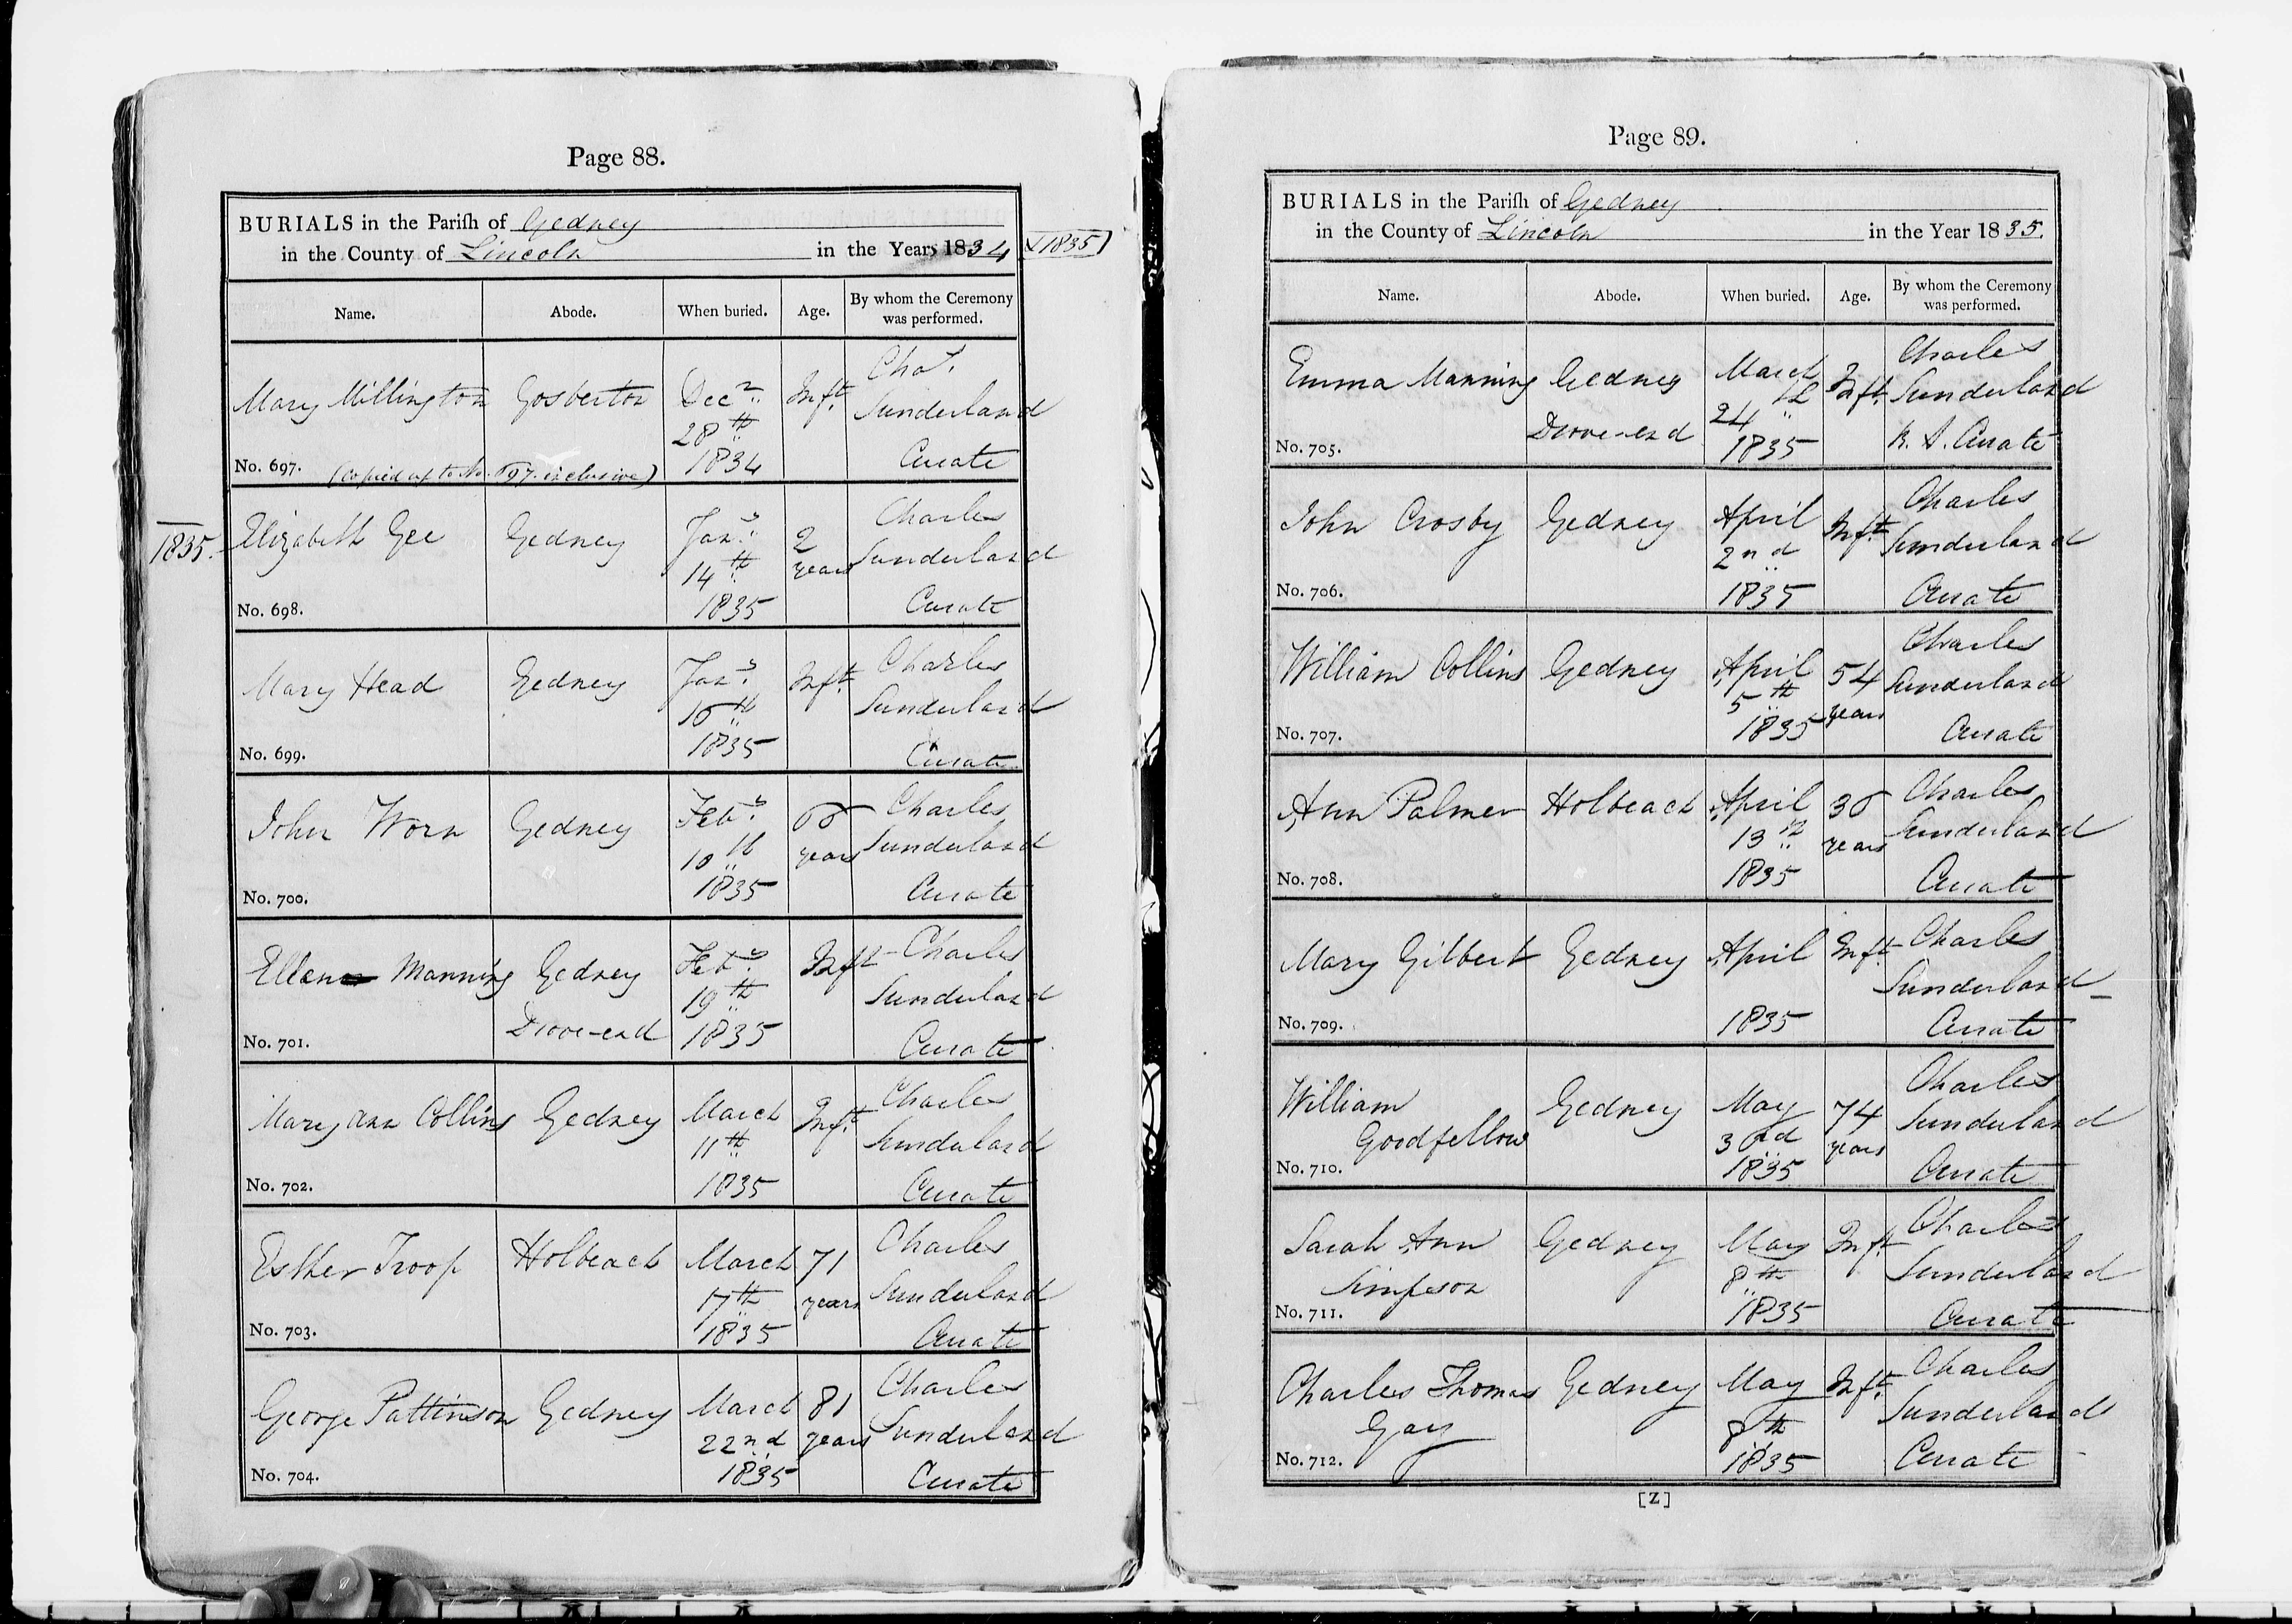 Page 88.
BURIALS in the Parish of Gedney
in the County of Lincoln in the Years 1834 & 1835
Name. Abode. When buried. Age. By whom the Ceremony was performed.
Mary Millington Gosberton Decr. 28th 1834 Inft. Chas. Sunderland Curate
No. 697. (Copied up to No. 697. inclusive)
1835.
Elizabeth Gee Gedney Jany. 14th 1835 2 years Charles Sunderland Curate
No. 698.
Mary Head Gedney Jany. 1835 Inft. Charles Sunderland Curate
No. 699.
John Worn Gedney Feby. 10th 1835 years Charles Sunderland Curate
No. 700.
Ellen Manning Gedney Drove-end Feby. 19th 1835 Inft Charles Sunderland Curate
No. 701.
Mary Ann Collins Gedney March 11th 1835 Inft. Charles Sunderland Curate
No. 702.
Esther Troop Holbeach March 17th 1835 71 years Charles Sunderland Curate
No. 703.
George Pattinson Gedney March 22nd 1835 81 years Charles Sunderland Curate
No. 704.
Page 89.
BURIALS in the Parish of Gedney
in the County of Lincoln in the Year 1835.
Name. Abode. When buried. Age. By whom the Ceremony was performed.
Emma Manning Gedney Drove-end March 24th 1835 Inft. Charles Sunderland Curate
No. 705.
John Crosby Gedney April 2nd 1835 Inft. Charles Sunderland Curate
No. 706.
William Collins Gedney April 5th 1835 54 years Charles Sunderland Curate
No. 707.
Ann Palmer Holbeach April 13th 1835 years Charles Sunderland Curate
No. 708.
Mary Gilbert Gedney April 1835 Inft. Charles Sunderland Curate
No. 709.
William Goodfellow Gedney May 1835 74 years Charles Sunderland Curate
No. 710.
Sarah Ann Simpson Gedney May 8th 1835 Inft. Charles Sunderland Curate
No. 711.
Charles Thomas Gay Gedney May 8th 1835 Inft. Charles Sunderland Curate
No. 712.
[Z]